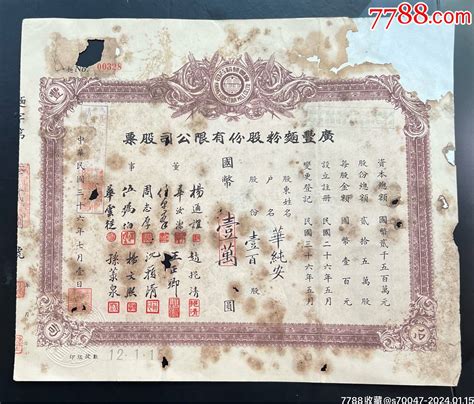 7788.com
No 00328
廣豐麵粉股份有限公司股票
資本總額 國幣貳千五百萬元
股份總額 貳拾五萬股
每股金額 國幣壹百元
設立註册 民國二十六年五月
變更登記 民國三十六年五月
股東姓名 華純安
戶名
股份 壹百股
國幣 壹萬圓
董事
楊通誼
趙挹清
華汝潔
王亞卿
周志厚
沈摺清
伍弼伯
楊文熙
華雲聰
孫萊泉
中華民國三十六年七月壹日
12.1.1
7788收藏@s70047-2024.01.15